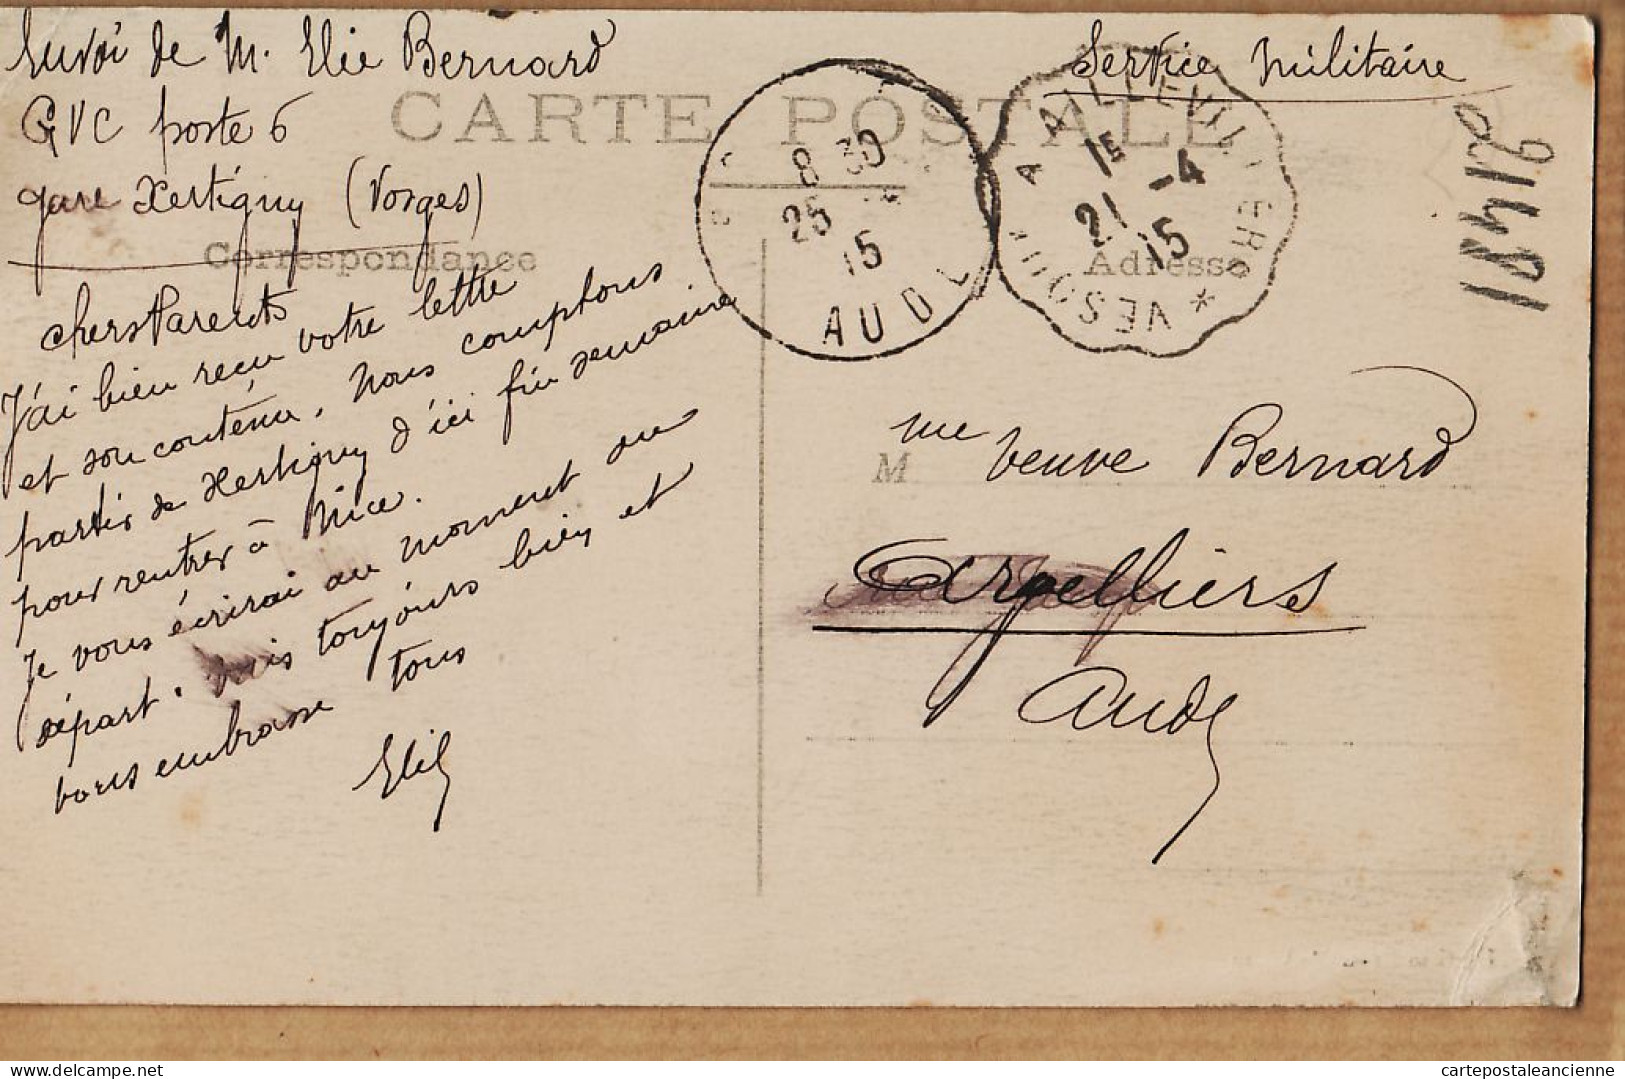 Envoi de M. Elie Bernard
GVC poste 6
gare Xertigny (Vosges)
Service Militaire
CARTE POSTALE
Correspondance
Adresse
8 30
25
15
AUDE
A AILLEVILLERS * VESOUL
15
21 -4
15
91481
chers Parents
J'ai bien reçu votre lettre
et son contenu. Nous comptons
partir de Xertigny d'ici fin semaine
pour rentrer à Nice.
Je vous écrirai au moment du
départ. Suis toujours bien et
vous embrasse tous
Elie
M
me Veuve Bernard
Argelliers
Aude
delcampe.net
cartepostaleancienne